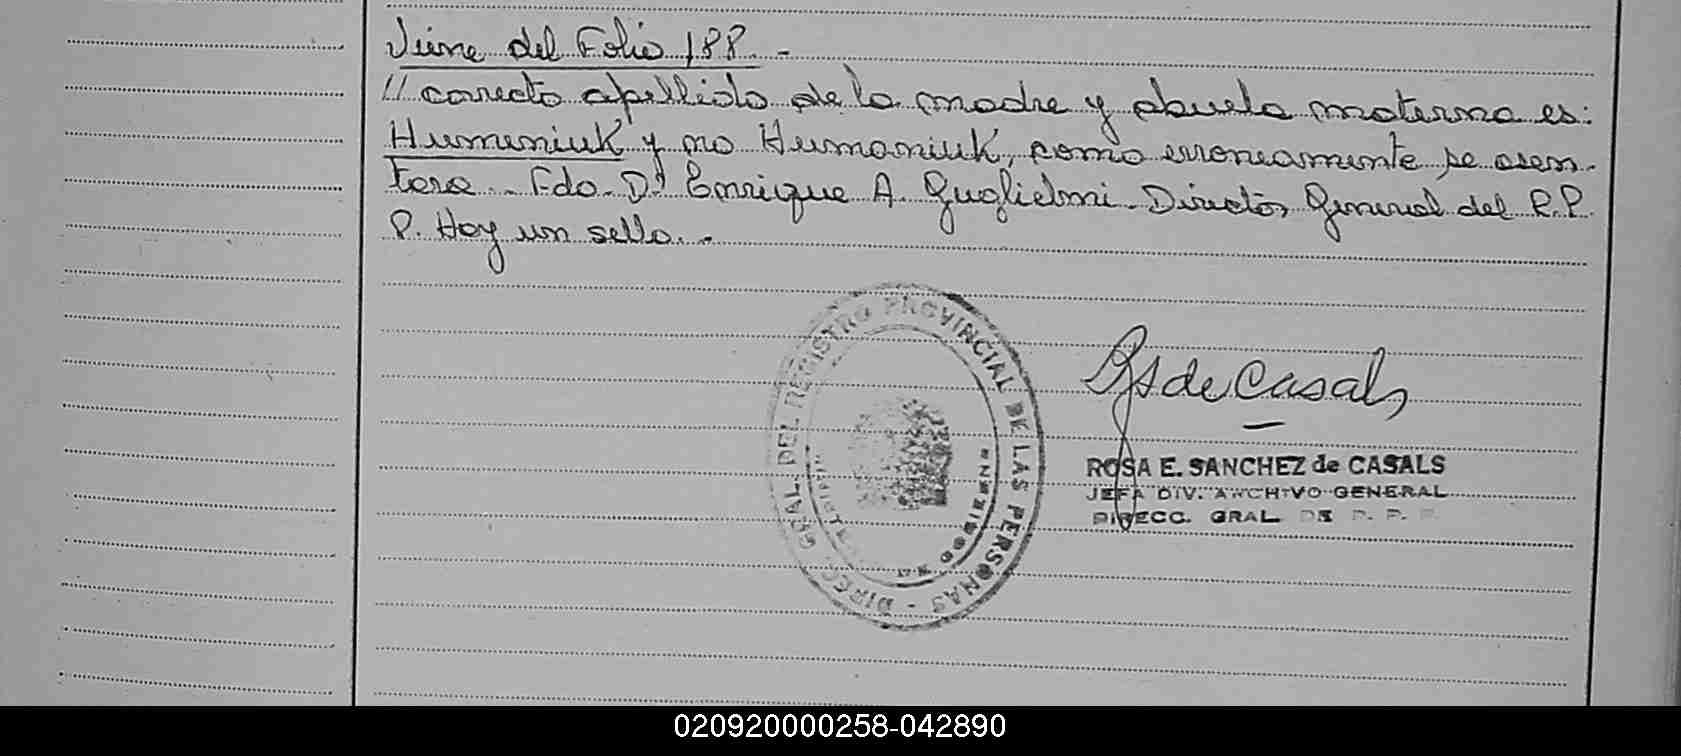 Viene del Folio 188. -
// correcto apellido de la madre y abuela materna es:
Humeniuk y no Humaniuk, como erroneamente se asen-
tara.- Fdo. Dr Enrique A. Guglielmi - Director General del R.P.
P. Hay un sello. -
DIRECC. GRAL. DEL REGISTRO PROVINCIAL DE LAS PERSONAS -
Rs de Casals
ROSA E. SANCHEZ de CASALS
JEFA DIV. ARCHIVO GENERAL
DIRECC. GRAL DE R. P. P.
020920000258-042890